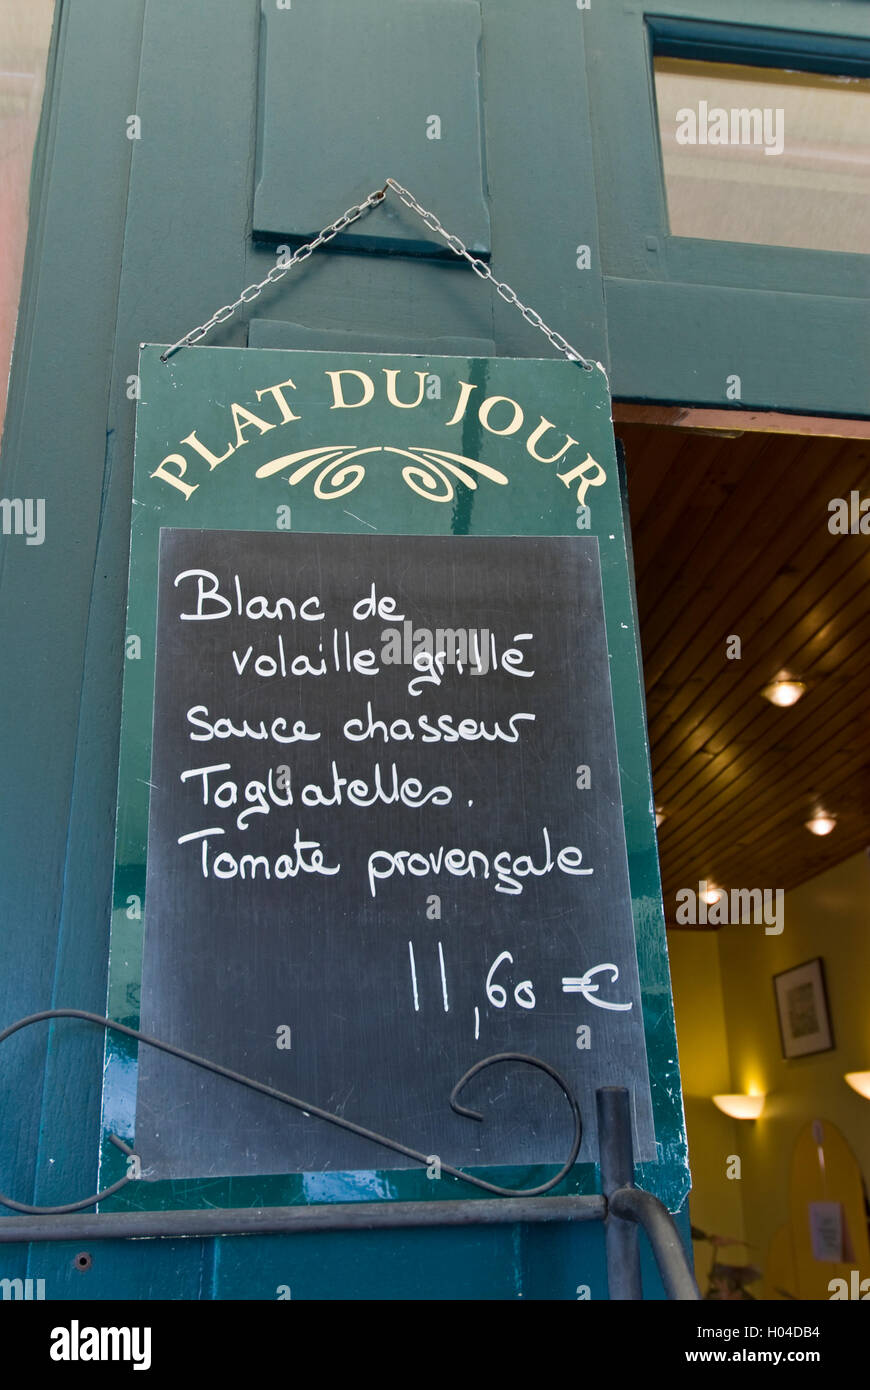 PLAT DU JOUR
Blanc de
volaille grillé
Sauce chasseur
Tagliatelles.
Tomate provençale
11,60 €
alamy
alamy
Image ID: H04DB4
www.alamy.com